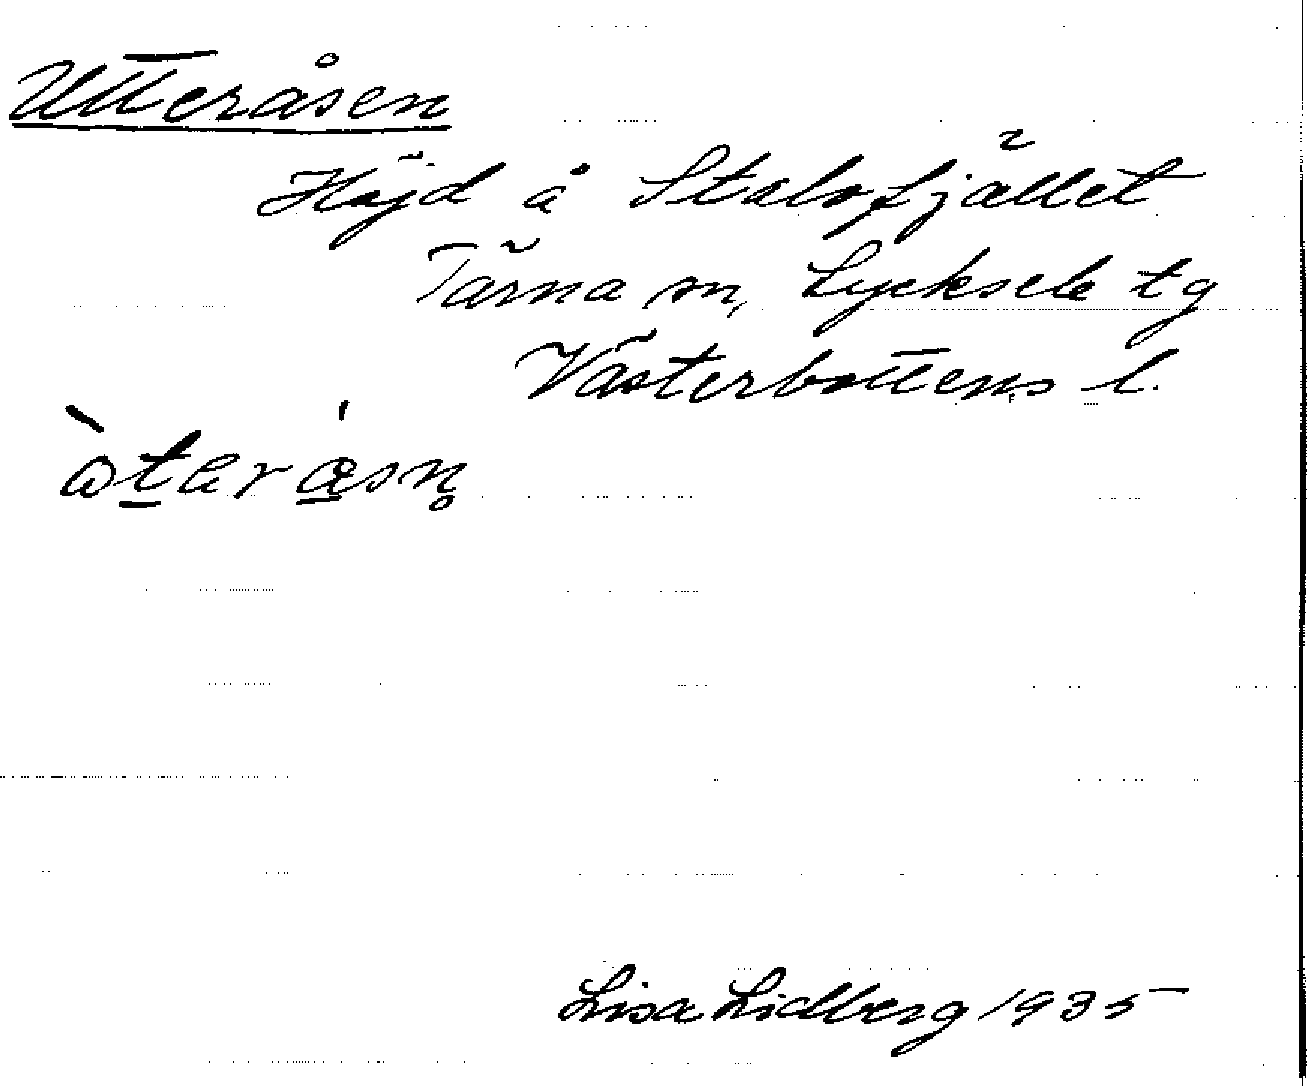 Utteråsen
Höjd å Stalofjället
Tärna sn, Lycksele tg
Västerbottens l.
Lisa Lidberg 1935